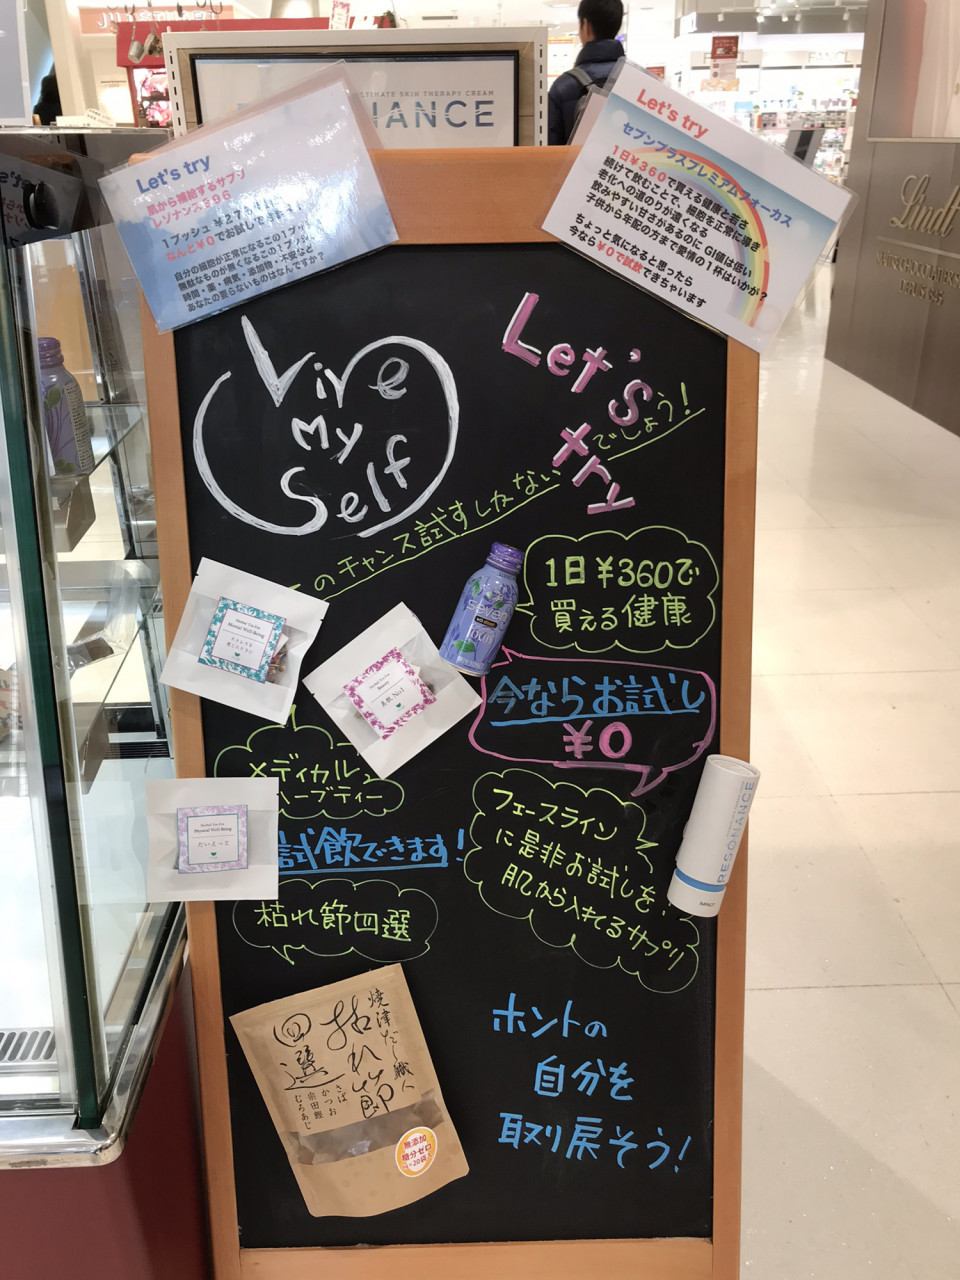 ULTIMATE SKIN THERAPY CREAM
IANCE
Let's try
肌から補給するサプリ
レゾナンス996
1プッシュ ¥276
なんと¥0でお試しできます!
自分の細胞が正常になるこの1プッシュ
無駄なものが無くなるこの1プッシュ
時間・薬・病気・添加物・不安など
あなたの要らないものはなんですか?
Let's try
セブンプラスプレミアムフォーカス
1日¥360で買える健康と若さ
続けて飲むことで、細胞を正常に導き
老化への道のりが遠くなる
飲みやすい甘さがあるのに GI値は低い
子供から年配の方まで愛情の1杯はいかが?
ちょっと気になると思ったら
今なら¥0で試飲できちゃいます
Lindt
Live
My
Self
Let's
try
このチャンス試すしかないでしょう!
1日¥360で
買える健康
seven
focus
今ならお試し
¥0
Herbal Tea For
Mental Well-Being
ストレスを
感じたときに
Herbal Tea For
Beauty
美肌 No1
メディカル
ハーブティー
Herbal Tea For
Physical Well-Being
だいえっと
試飲できます!
フェースライン
に是非お試しを!
肌から入れるサプリ
RESONANCE
IMPACT
枯れ節四選
焼津だし職人
枯れ節
四選
さば
かつお
宗田鰹
むろあじ
無添加
塩分ゼロ
ホントの
自分を
取り戻そう!